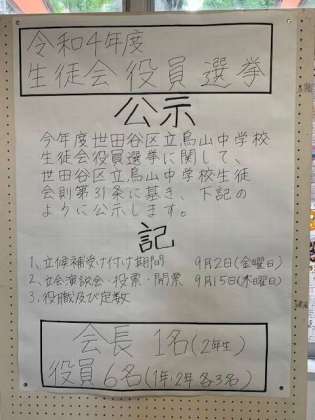 令和4年度
生徒会役員選挙
公示
今年度世田谷区立烏山中学校
生徒会役員選挙に関して、
世田谷区立烏山中学校生徒
会則第31条に基き、下記の
ように公示します。
記
1、立候補受け付け期間 9月2日(金曜日)
2、立会演説会・投票・開票 9月15日(木曜日)
3、役職及び定数
会長 1名(2年生)
役員 6名(1年,2年 各3名)